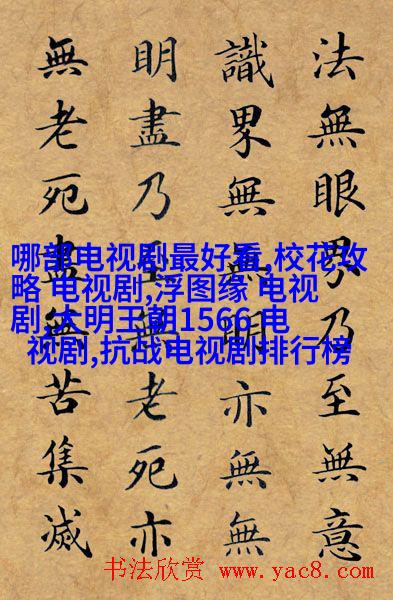 法無眼界乃至無意
識界無無明亦無無
明盡乃至無老死亦
無老死盡無苦集滅
哪部电视剧最好看,校花攻
略 电视剧,浮图缘 电视
剧,大明王朝1566 电
视剧,抗战电视剧排行榜
书法欣赏 www.yac8.com